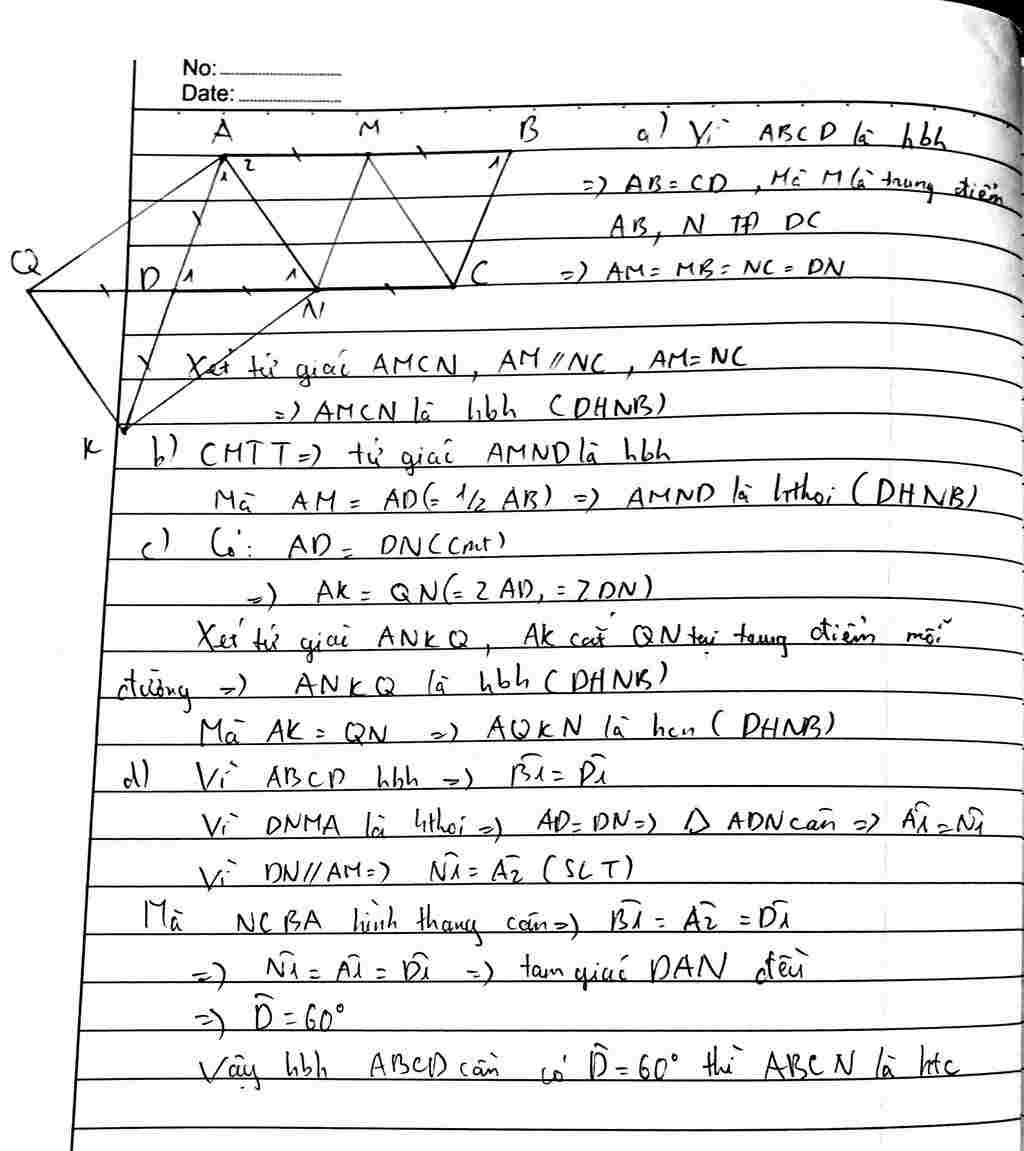 No:
Date:
A M B
1 2 1
Q D 1 1 C
N
K
a) Vì ABCD là hbh
=> AB = CD , Mà M là trung điểm
AB, N TĐ DC
=> AM = MB = NC = DN
Xét tứ giác AMCN, AM // NC, AM = NC
=> AMCN là hbh (DHNB)
b) CMTT => tứ giác AMND là hbh
Mà AM = AD (= 1/2 AB) => AMND là hthoi (DHNB)
c) Có: AD = DN (cmt)
=> AK = QN (= 2 AD, = 2 DN)
Xét tứ giác ANKQ, AK cắt QN tại trung điểm mỗi
đường => ANKQ là hbh (DHNB)
Mà AK = QN => AQKN là hcn (DHNB)
d) Vì ABCD hbh => B̂1 = D̂1
Vì DNMA là hthoi => AD = DN => Δ ADN cân => Â1 = N̂1
Vì DN // AM => N̂1 = Â2 (SLT)
Mà NCBA hình thang cân => B̂1 = Â2 = D̂1
=> N̂1 = Â1 = D̂1 => tam giác DAN đều
=> D̂ = 60°
Vậy hbh ABCD cần có D̂ = 60° thì ABCN là htc